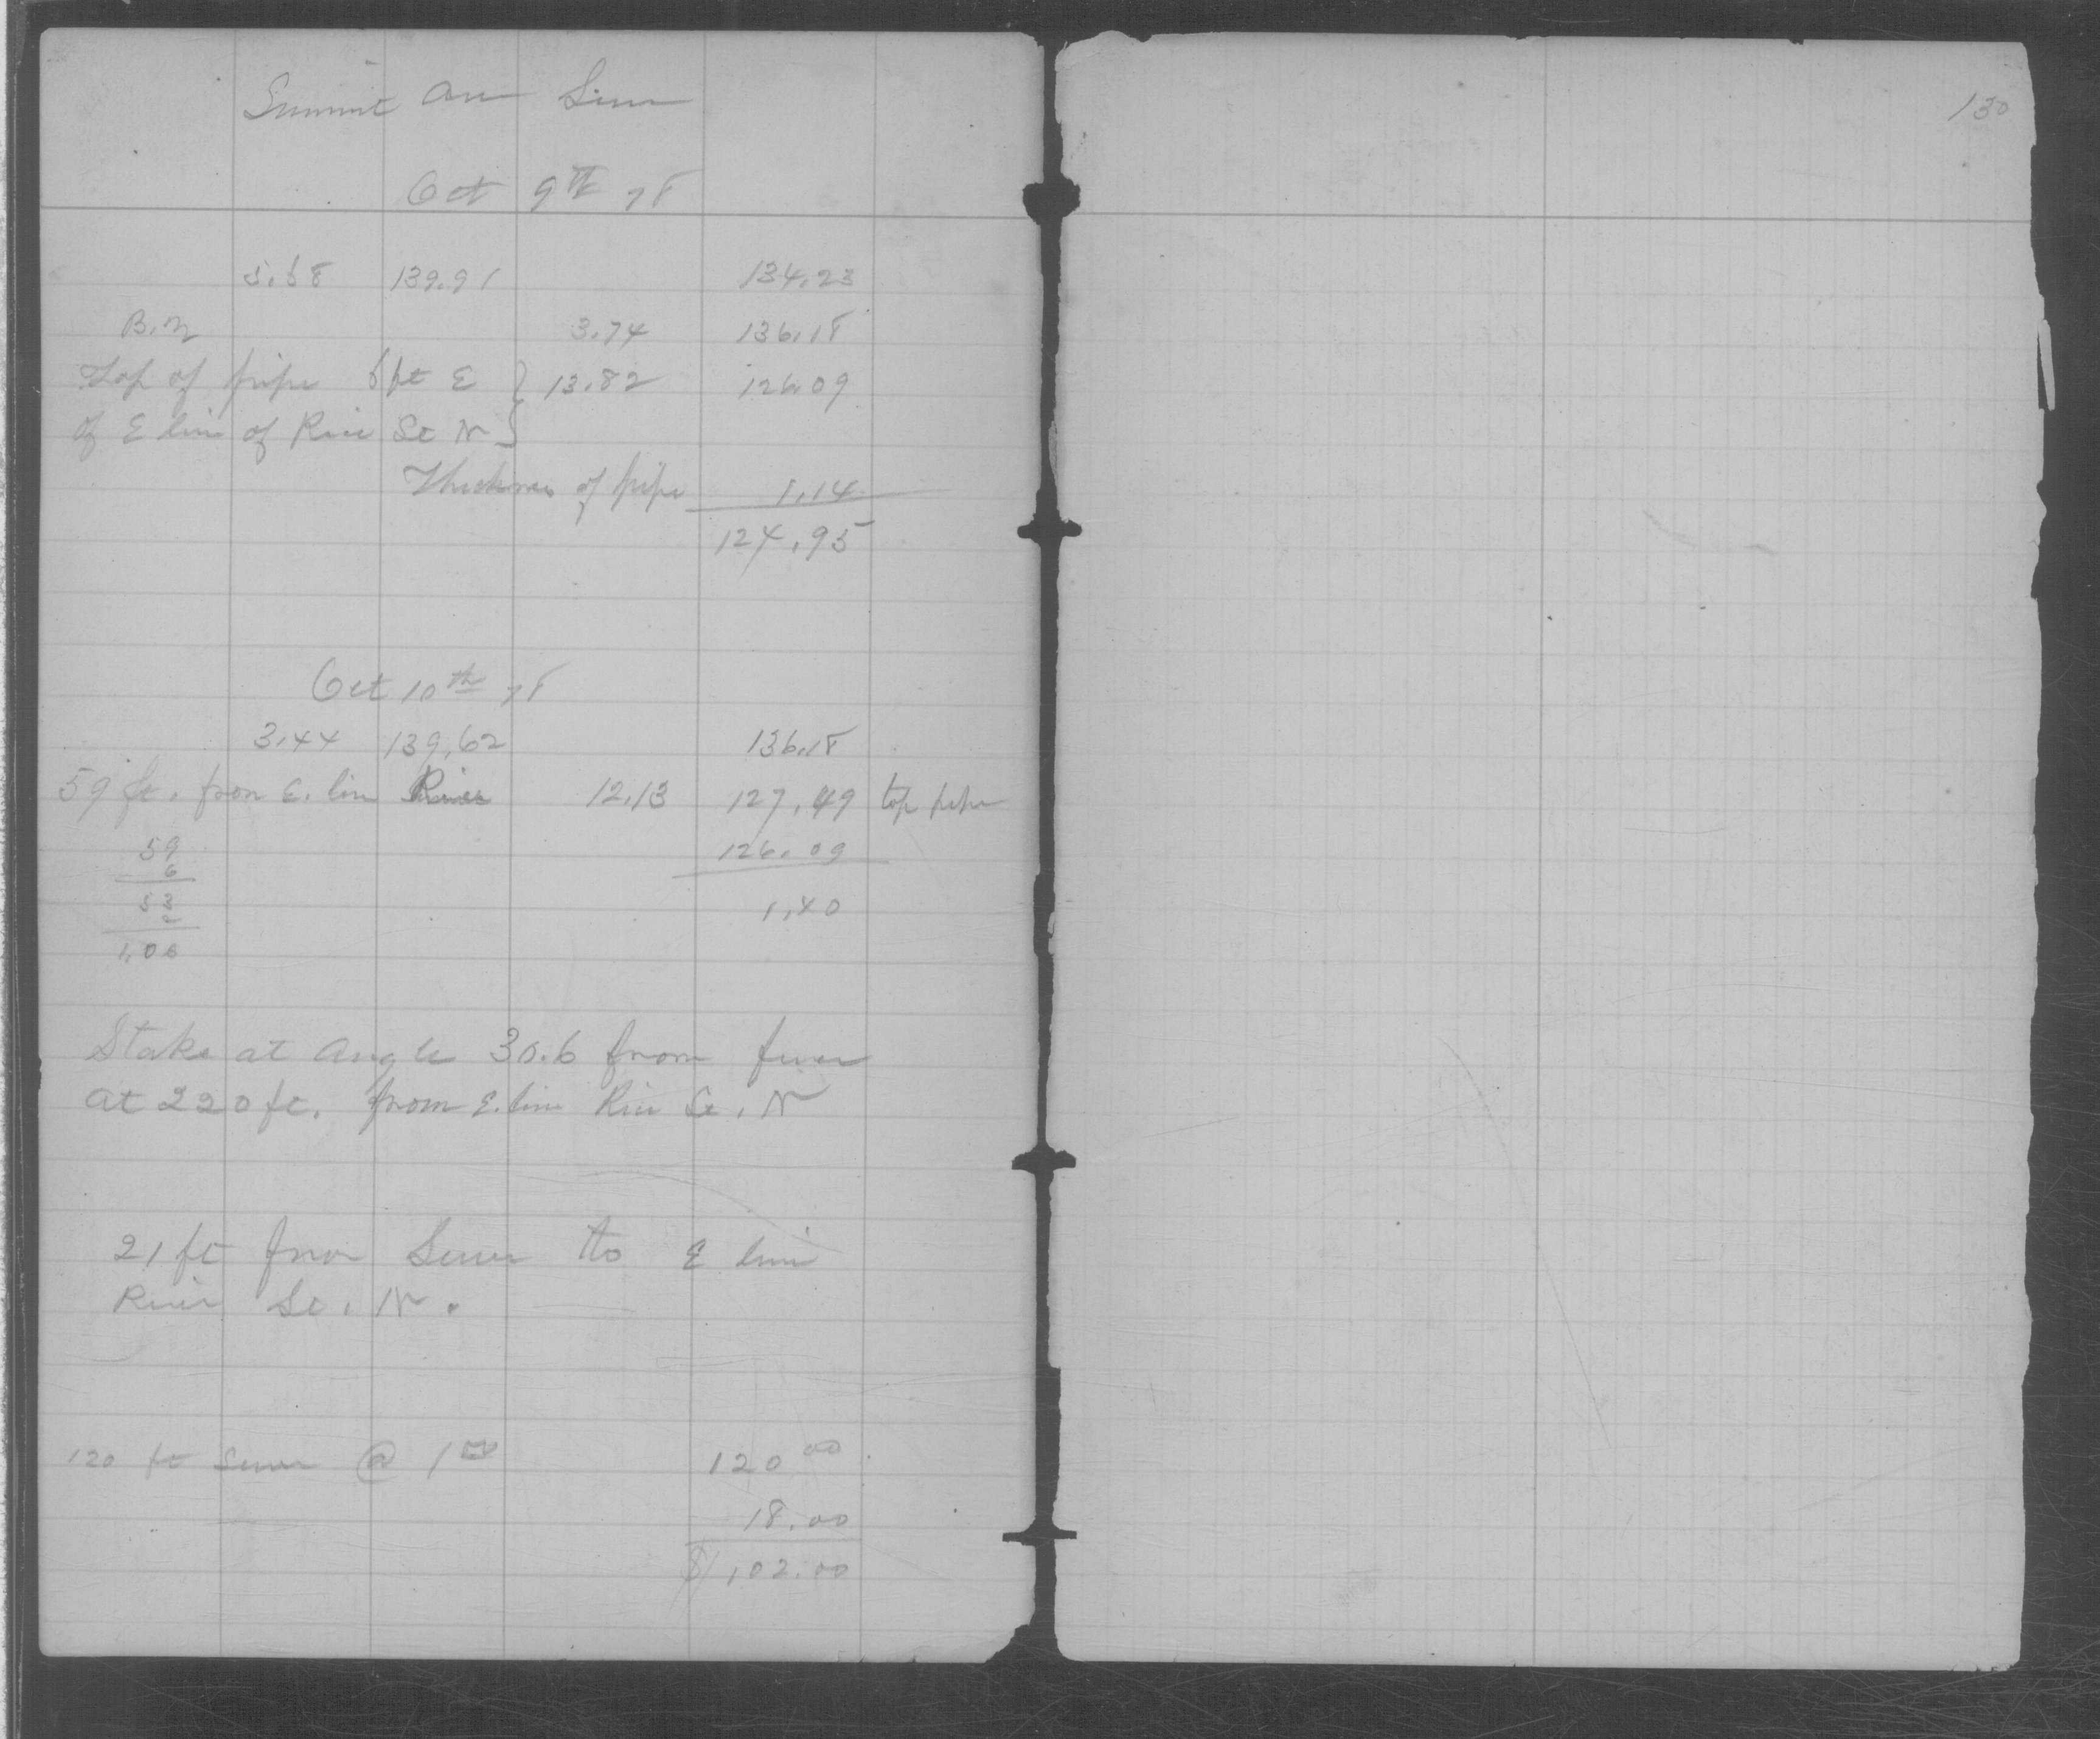 Summit Ave Sewer
Oct 9th 78
5.68 139.91 134.23
B.M 3.74 136.18
Top of pipe 6 ft E } 13.82 126.09
of E line of River St N
Thickness of pipe 1.14
124.95
Oct 10th 78
3.44 139.62 136.18
59 ft. from E. line River 12.13 127.49 top pipe
59 126.09
6
53 1.40
2
1.06
Stake at Angle 30.6 from
at 220 ft. from E. line River St. N
21 ft from Sewer to E line
River St. N.
120 ft Sewer @ 1 00 120 00
18.00
$102.00
130